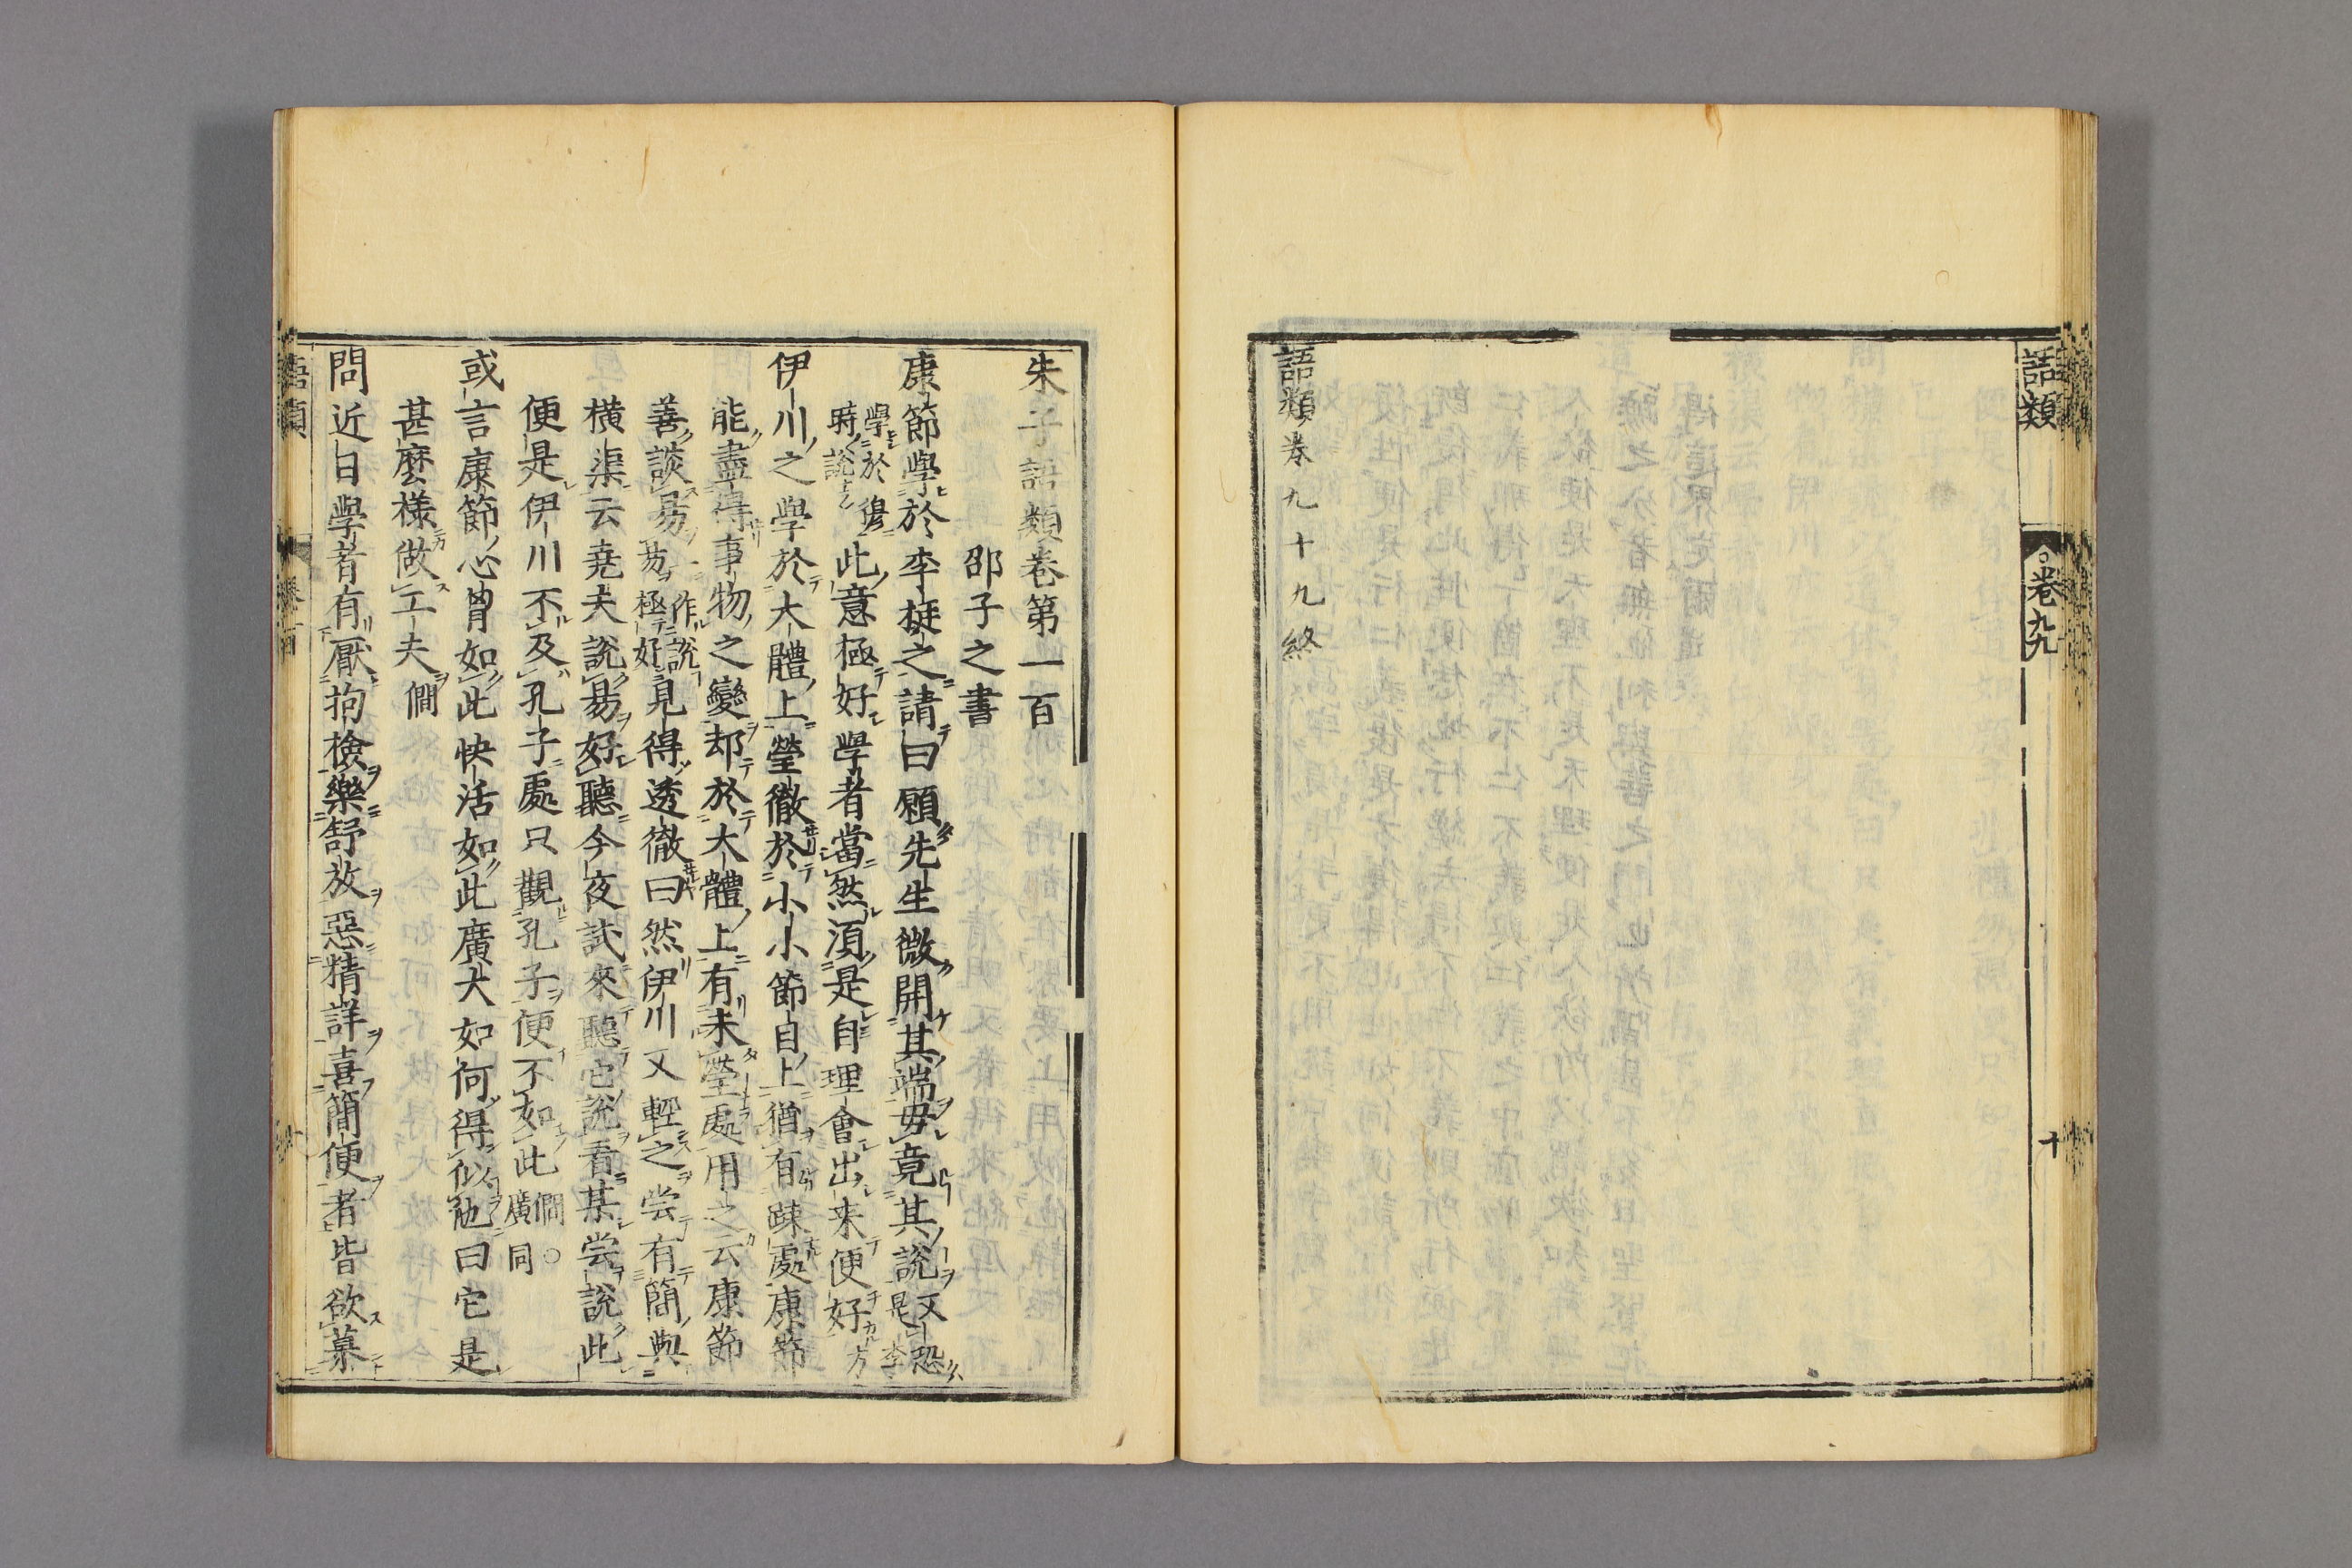 語類
卷九九
十
語類卷九十九終
朱子語類卷第一百
邵子之書
康節學於李挺之請曰願先生微開其端毋竟其說又恐是李
學於穆時說此意極好學者當然須是自理會出来便好方
伊川之學於大體上瑩徹於小小節自上猶有踈處康節
能盡得事物之變却於大體上有未瑩處用之云康節
善談易一作說易極好見得透徹曰然伊川又輕之嘗有簡與
橫渠云堯夫說易好聽今夜試來聽它說看某嘗說此
便是伊川不及孔子處只觀孔子便不如此僩○廣同
或言康節心胷如此快活如此廣大如何得似他曰它是
甚麼様做工夫僩
問近日學者有厭拘檢樂舒放惡精詳喜簡便者皆欲慕
語類
卷一百